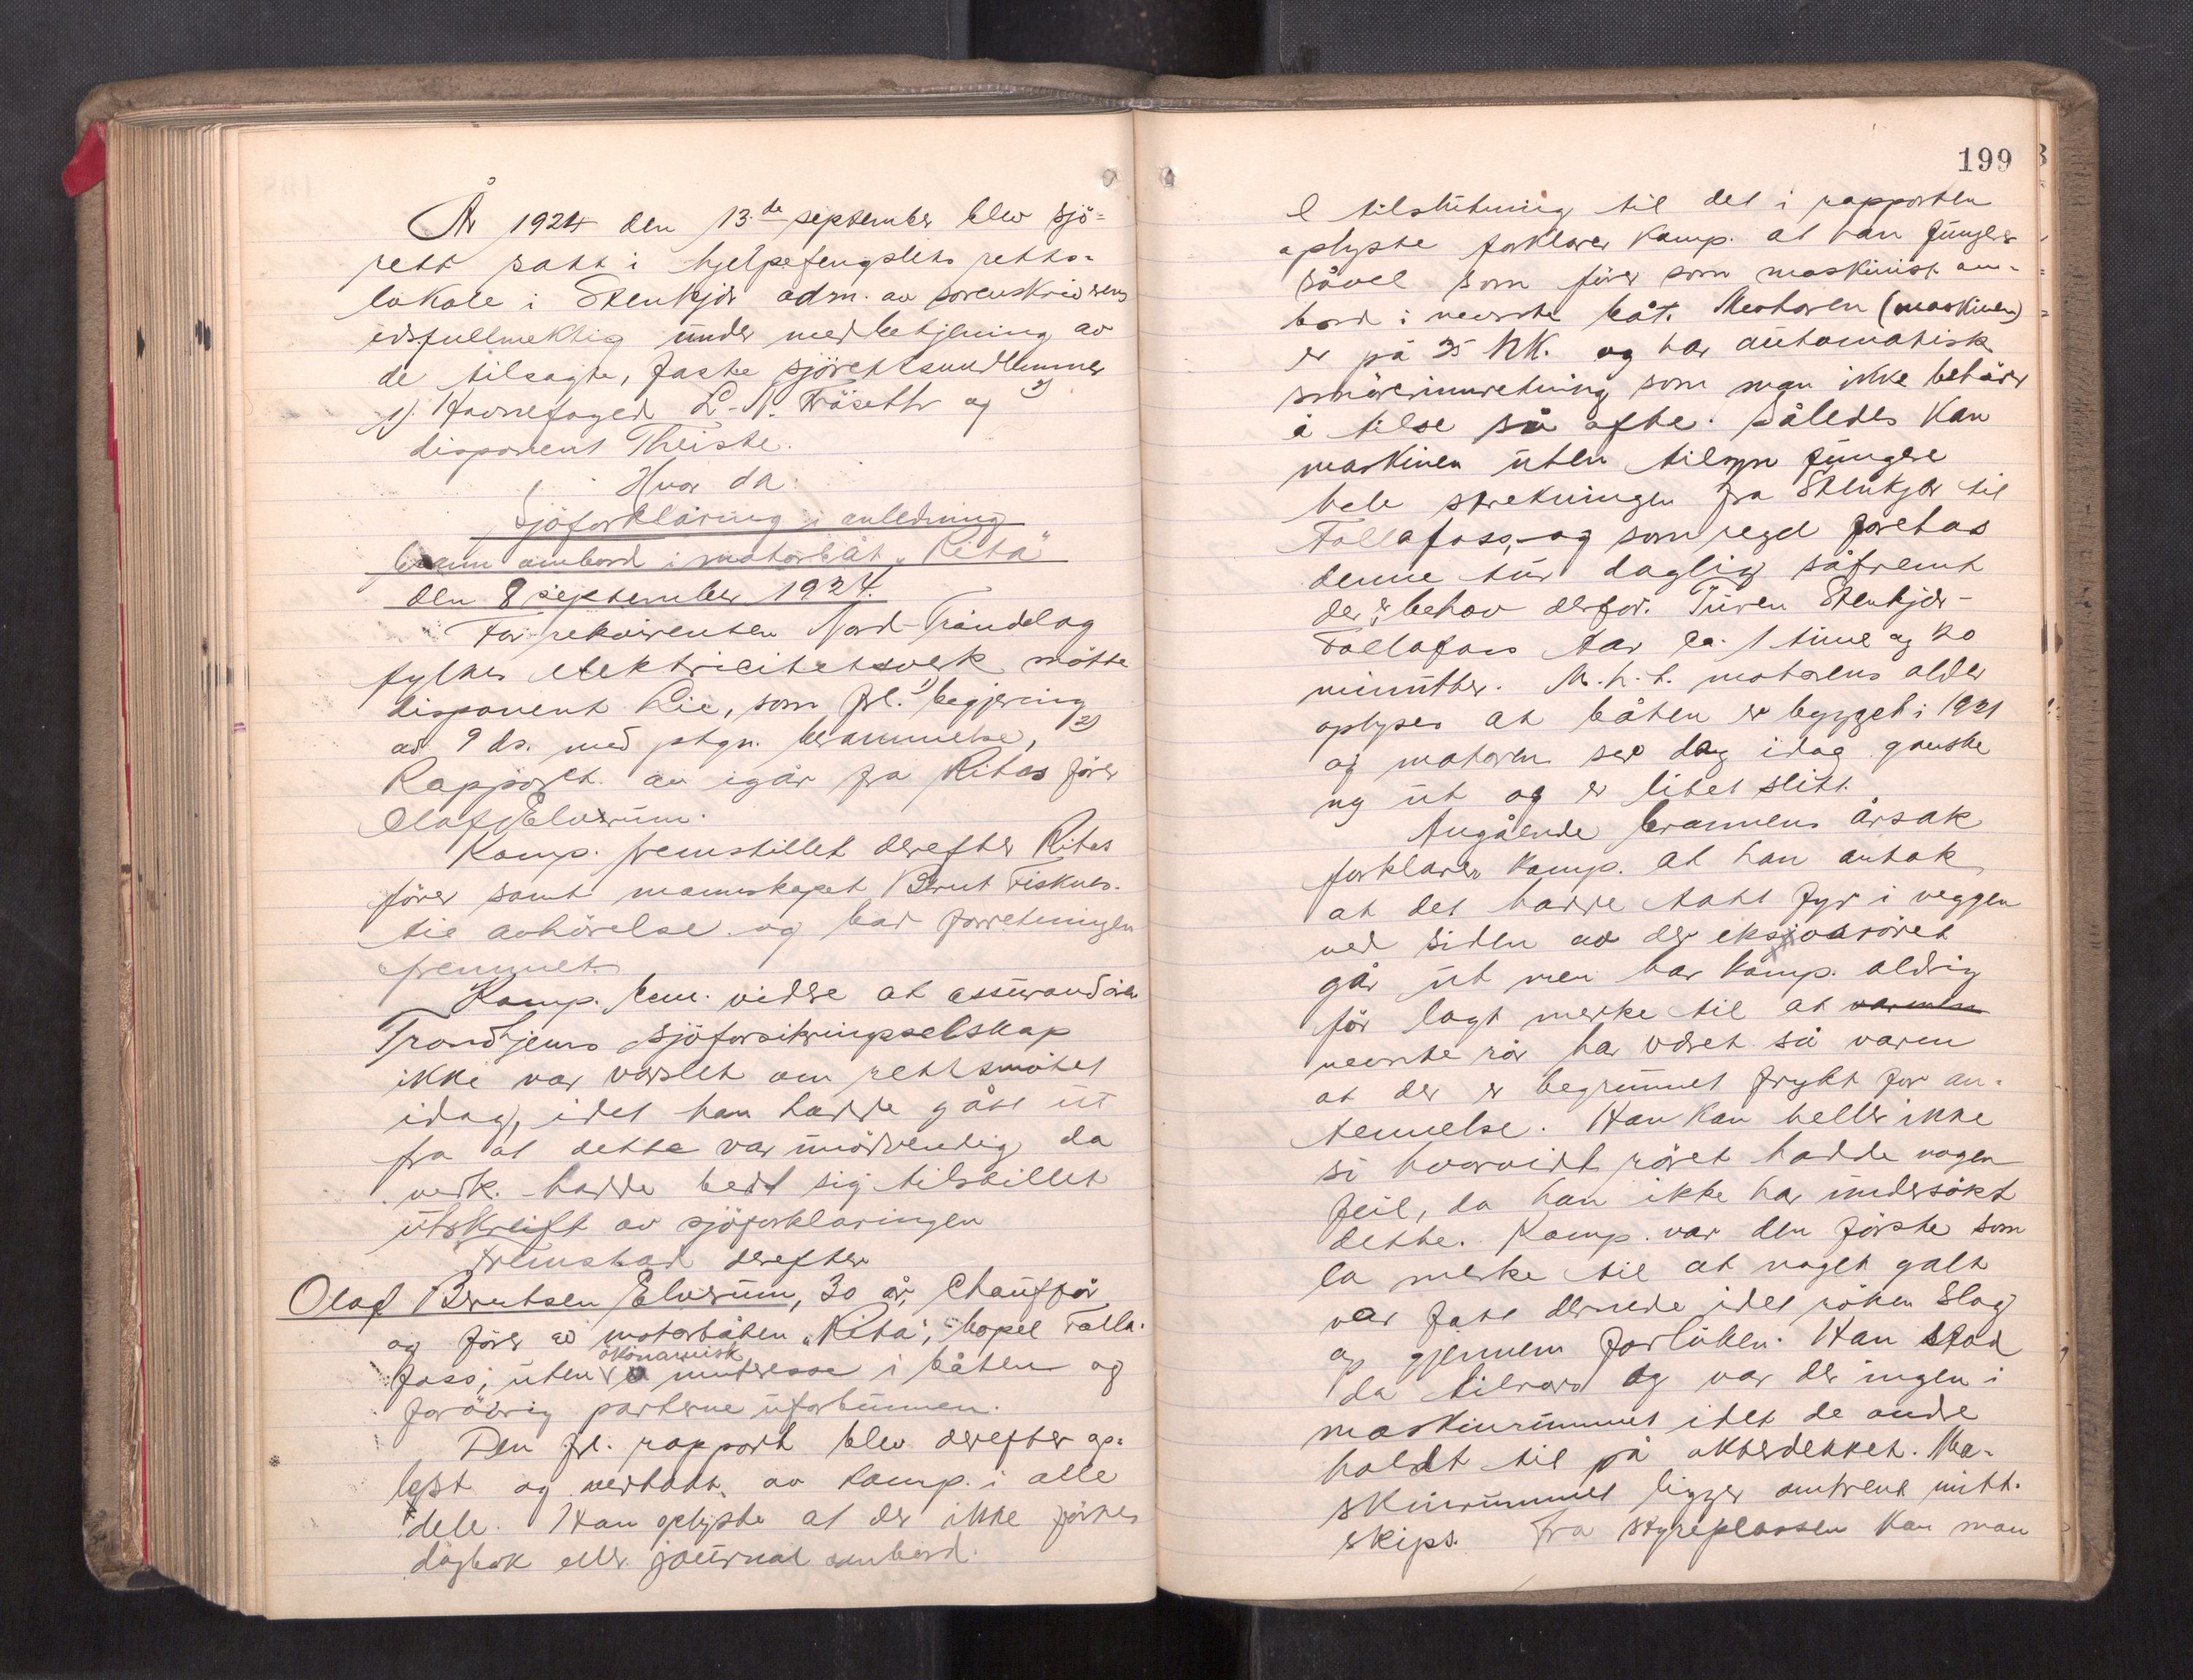 År 1924 den 13.de september blev sjö=
rett satt i hjelpefengslets retts-
lokale i Stenkjær adm. av sorenskriverens
edsfullmektig under medbetjening av
de tilsagte, faste sjörettsmedlemmer
1) havnefoged L. N. Fösetth og 2)
disponent Theiste.
Hvor da:
Sjöforklaring i anledning
brann ombord i motorbåt "Rita"
den 8 september 1924.
For rekvirenten Nord-Trøndelag
fylkes elektricitetsverk mötte
disponent Lie, som frl. 1) begjering
av 9 ds. med påtgn. berammelse, 2)
Rapport av igår fra Ritas förer
Olaf Elverum.
Komp. fremstillet derefter Ritas
förer samt mannskapet Bernt Fisknes
til avhörelse og bad forretningen
fremmet.
Komp. bem. videre at assurandören
Trondhjems sjöforsikringsselskap
ikke var varslet om rettsmötet
idag, idet han hadde gått ut
fra at dette var unödvendig da
vedk. hadde bedt sig tilstillet
utskrift av sjöforklaringen
Fremstod derefter
Olaf Berntsen Elverum, 30 år, Chaufför
og förer av motorbåten "Rita", bopel Folla-
foss, uten ökonomisk interesse i båten og
forövrig parterne uforbunnen.
Den frl. rapport blev derefter op-
lest og vedtatt av komp. i alle
dele. Han oplyste at der ikke föres
dagbok eller journal ombord.
199
I tilslutning til det i rapporten
oplyste forklarer komp. at han fungerer
såvel som förer som maskinist om-
bord i nevnte båt. Motoren (maskinen)
er på 25 HK. og har automatisk
smöreinnretning som man ikke behöver
å tilse så ofte. Således kan
maskinen uten tilsyn fungere
hele strekningen fra Stenkjær til
Follafoss, og som regel foretas
denne tur daglig såfremt
der er behov derfor. Turen Stenkjær-
Follafoss tar ca. 1 time og 20
minutter. M.h.t. motorens alder
oplyses at båten er bygget i 1921
og motoren ser dag idag ganske
ny ut og er litet slitt.
Angående brannens årsak
forklarer komp. at han antok
at det hadde tatt fyr i veggen
ved siden av der eksosröret
går ut men har komp. aldrig
för lagt merke til at varmen
nevnte rör har været så varm
at der er begrunnet frykt for an-
tennelse. Han kan heller ikke
si hvorvidt röret hadde nogen
feil, da han ikke har undersökt
dette. Komp. var den förste som
la merke til at noget galt
var fatt dernede idet röken slog
op gjennem forluken. Han stod
da tilrors og var der ingen i
maskinrummet idet de andre
holdt til på akterdekket. Ma-
skinrummet ligger omtrent mitt-
skips. Fra styreplassen kan man